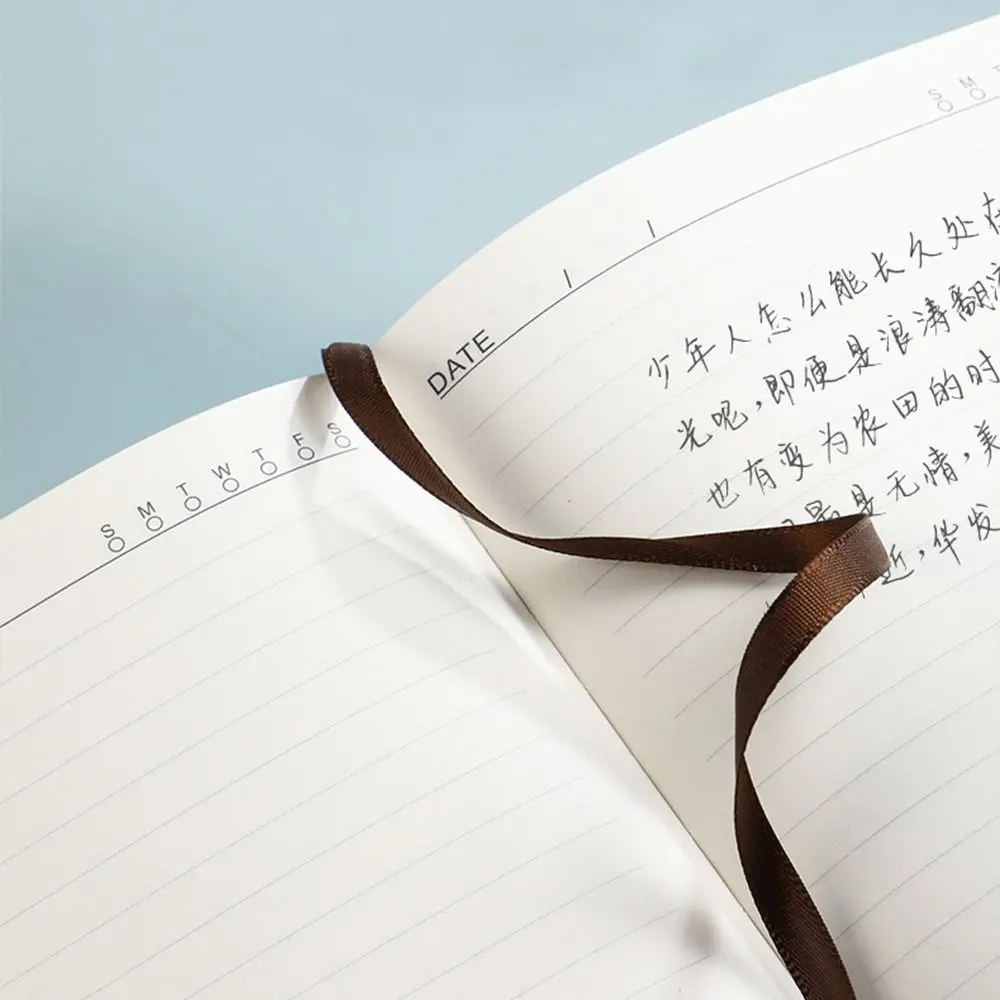 S M T W T F S
DATE / /
S M T
少年人怎么能长久处在
光呢，即便是浪涛翻
也有变为农田的时
最是无情，美
近，华发